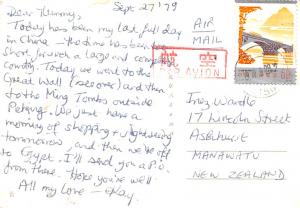 Sept 27 '79
Dear Mummy,
Today has been my last full day
in China – the time has been too
short for such a large and complex
country. Today we went to the
Great Wall (see over) and then
to the Ming Tombs outside
Peking. We just have a
morning of shopping & sightseeing
tomorrow and then we're off
to Egypt. I'll send you a p.c.
from there. Hope you're well.
All my love – Kay.
AIR
MAIL
航空
PAR AVION
Inez Wardle
17 Lincoln Street
Ashhurst
MANAWATU
NEW ZEALAND